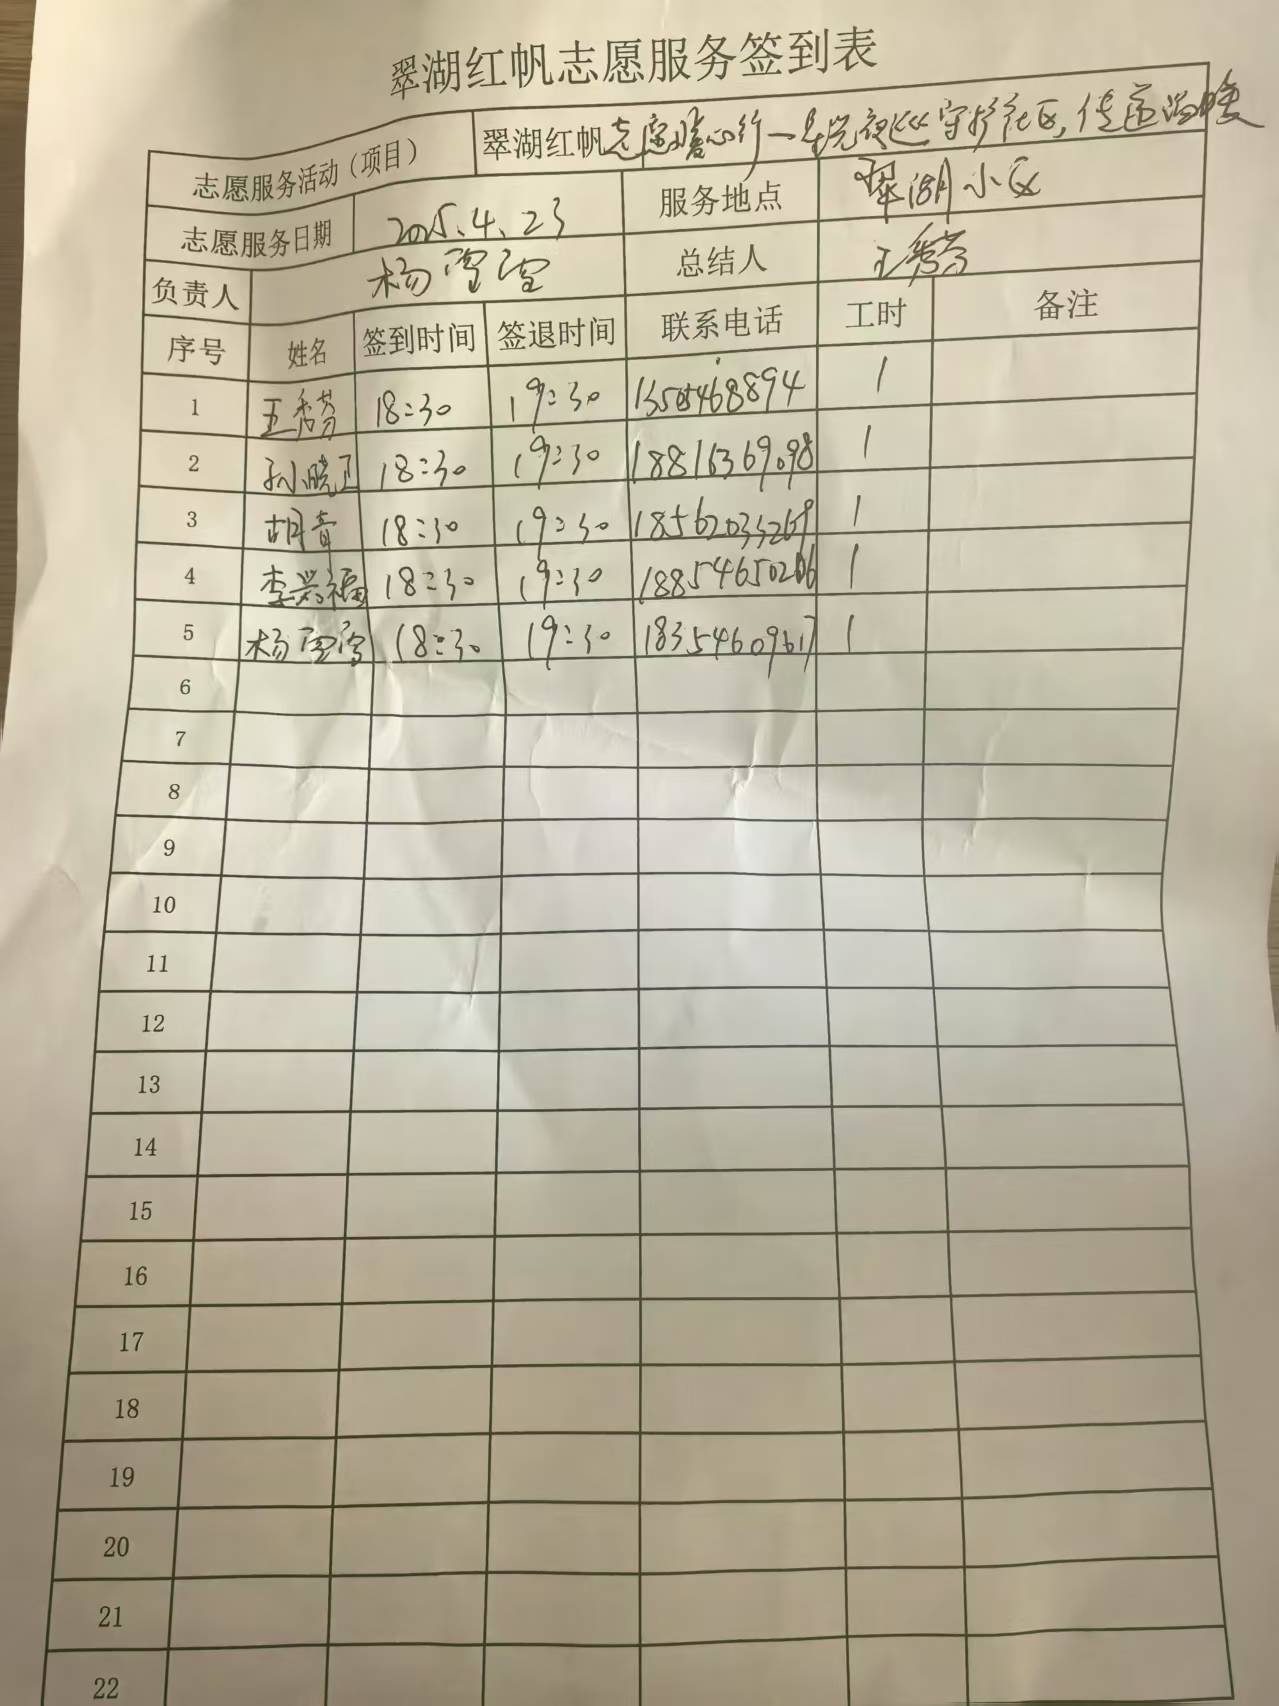 翠湖红帆志愿服务签到表
志愿服务活动（项目） 翠湖红帆志愿暖心行一星光夜巡守护社区，传递温暖
志愿服务日期 2025.4.23 服务地点 翠湖小区
负责人 杨雪雪 总结人 王秀芳
序号 姓名 签到时间 签退时间 联系电话 工时 备注
1 王秀芳 18:30 19:30 13505468894 1
2 孙晓卫 18:30 19:30 18816369098 1
3 胡青 18:30 19:30 18562033269 1
4 李兴福 18:30 19:30 1
5 杨雪雪 18:30 19:30 18354609617 1
6
7
8
9
10
11
12
13
14
15
16
17
18
19
20
21
22